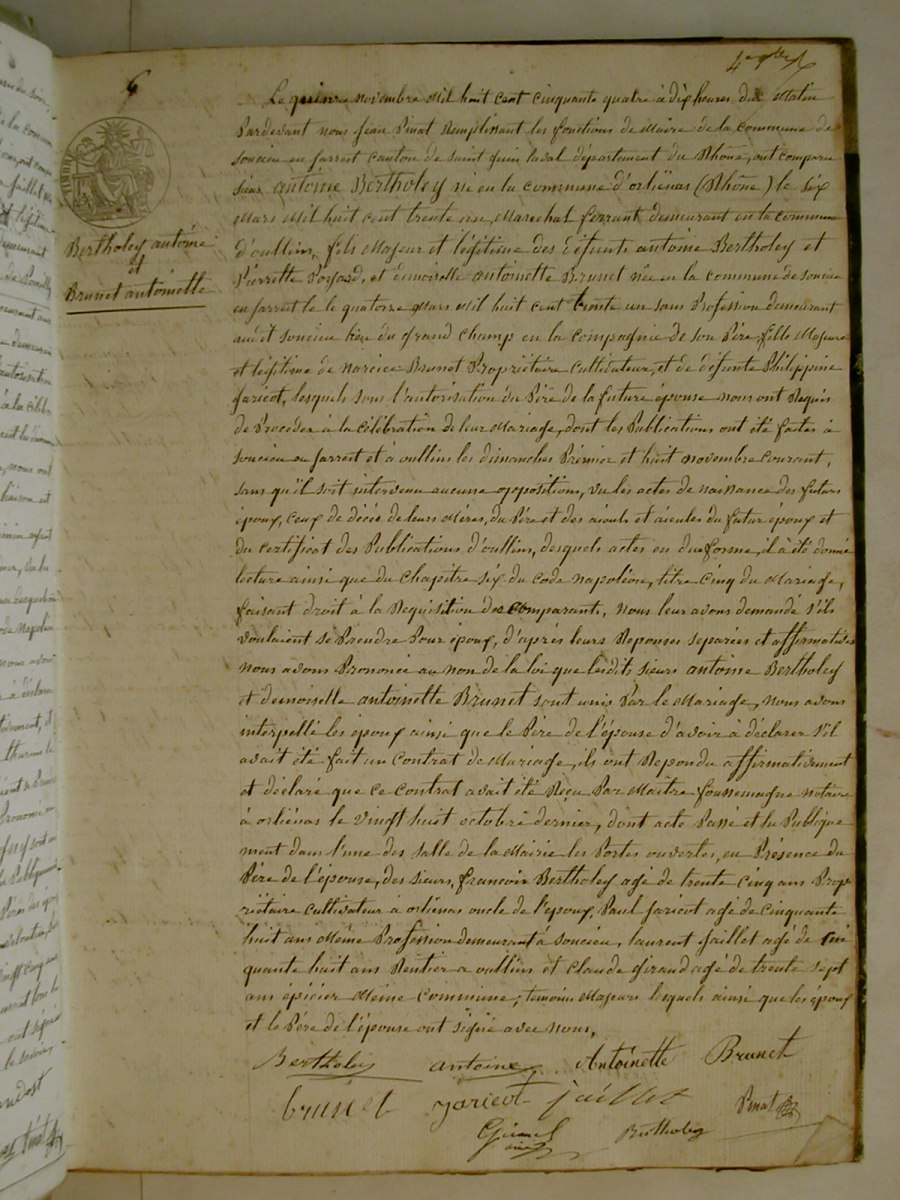 6
Bertholey antoine
et
Brunet antoinette
Le quinze novembre Mil huit cent cinquante quatre à dix heures du Matin
Pardevant nous jean Pinat Remplissant les fonctions de Maire de la commune de
soucieu en jarrest canton de saint genis laval département du Rhône, ont comparu
sieur antoine Bertholey né en la commune d'orliénas (Rhône) le six
Mars Mil huit cent trente un, Maréchal ferrant, demeurant en la commune
d'oullins, fils Majeur et légitime des défunts antoine Bertholey et
Pierrette Poyard, et demoiselle antoinette Brunet née en la commune de soucieu
en jarrest le quatorze Mars Mil huit cent trente un sans Profession demeurant
audit soucieu lieu du grand champ en la compagnie de son Père, fille Majeure
et légitime de narcice Brunet Propriétaire Cultivateur, et de défunte Philippine
jaricot, lesquels sous l'autorisation du Père de la future épouse nous ont Requis
de Procéder à la célébration de leur Mariage, dont les Publications ont été faites à
soucieu en jarrest et à oullins les dimanches Prémier et huit novembre courant,
sans qu'il soit intervenu aucune oppositions, vu les actes de naissance des futurs
époux, ceux de décés de leurs Méres, du Père et des aieuls et aieules du futur époux et
du certificat des Publications d'oullins, desquels actes en due forme, il à été donné
lecture ainsi que du chapitre six du code napoléon, titre cinq du Mariage,
faisant droit à la Requisition des comparants, nous leur avons demandé s'ils
voulaient se Prendre Pour époux, d'après leurs Reponses separées et affirmatives
nous avons Prononcé au nom de la loi que lesdits sieurs antoine Bertholey
et demoiselle antoinette Brunet sont unis Par le Mariage, nous avons
interpellé les époux ainsi que le Père de l'épouse d'avoir à déclarer s'il
avait été fait un Contrat de Mariage, ils ont Repondu affirmativement
et déclaré que ce contrat avait été Reçu Par Maitre foussemagne notaire
à orliénas le vingt huit octobre dernier, dont acte Passé et lu Publique
ment dans l'une des salle de la Mairie les Portes ouvertes, en Présence du
Père de l'épouse, des sieurs, francois Bertholey agé de trente cinq ans Prop
riétaire cultivateur à orliénas oncle de l'époux, Paul jaricot agé de cinquante
huit ans Même Profession demeurant à soucieu, laurent jaillet agé de cin
quante huit ans Rentier a oullins et claude giraud agé de trente sept
ans épicier Même commune, temoins Majeurs lesquels ainsi que les époux
et le Père de l'épouse ont signé avec nous,
Bertholey antoine Antoinette Brunet
brunet jaricot jaillet Pinat
Giraud Bertholey